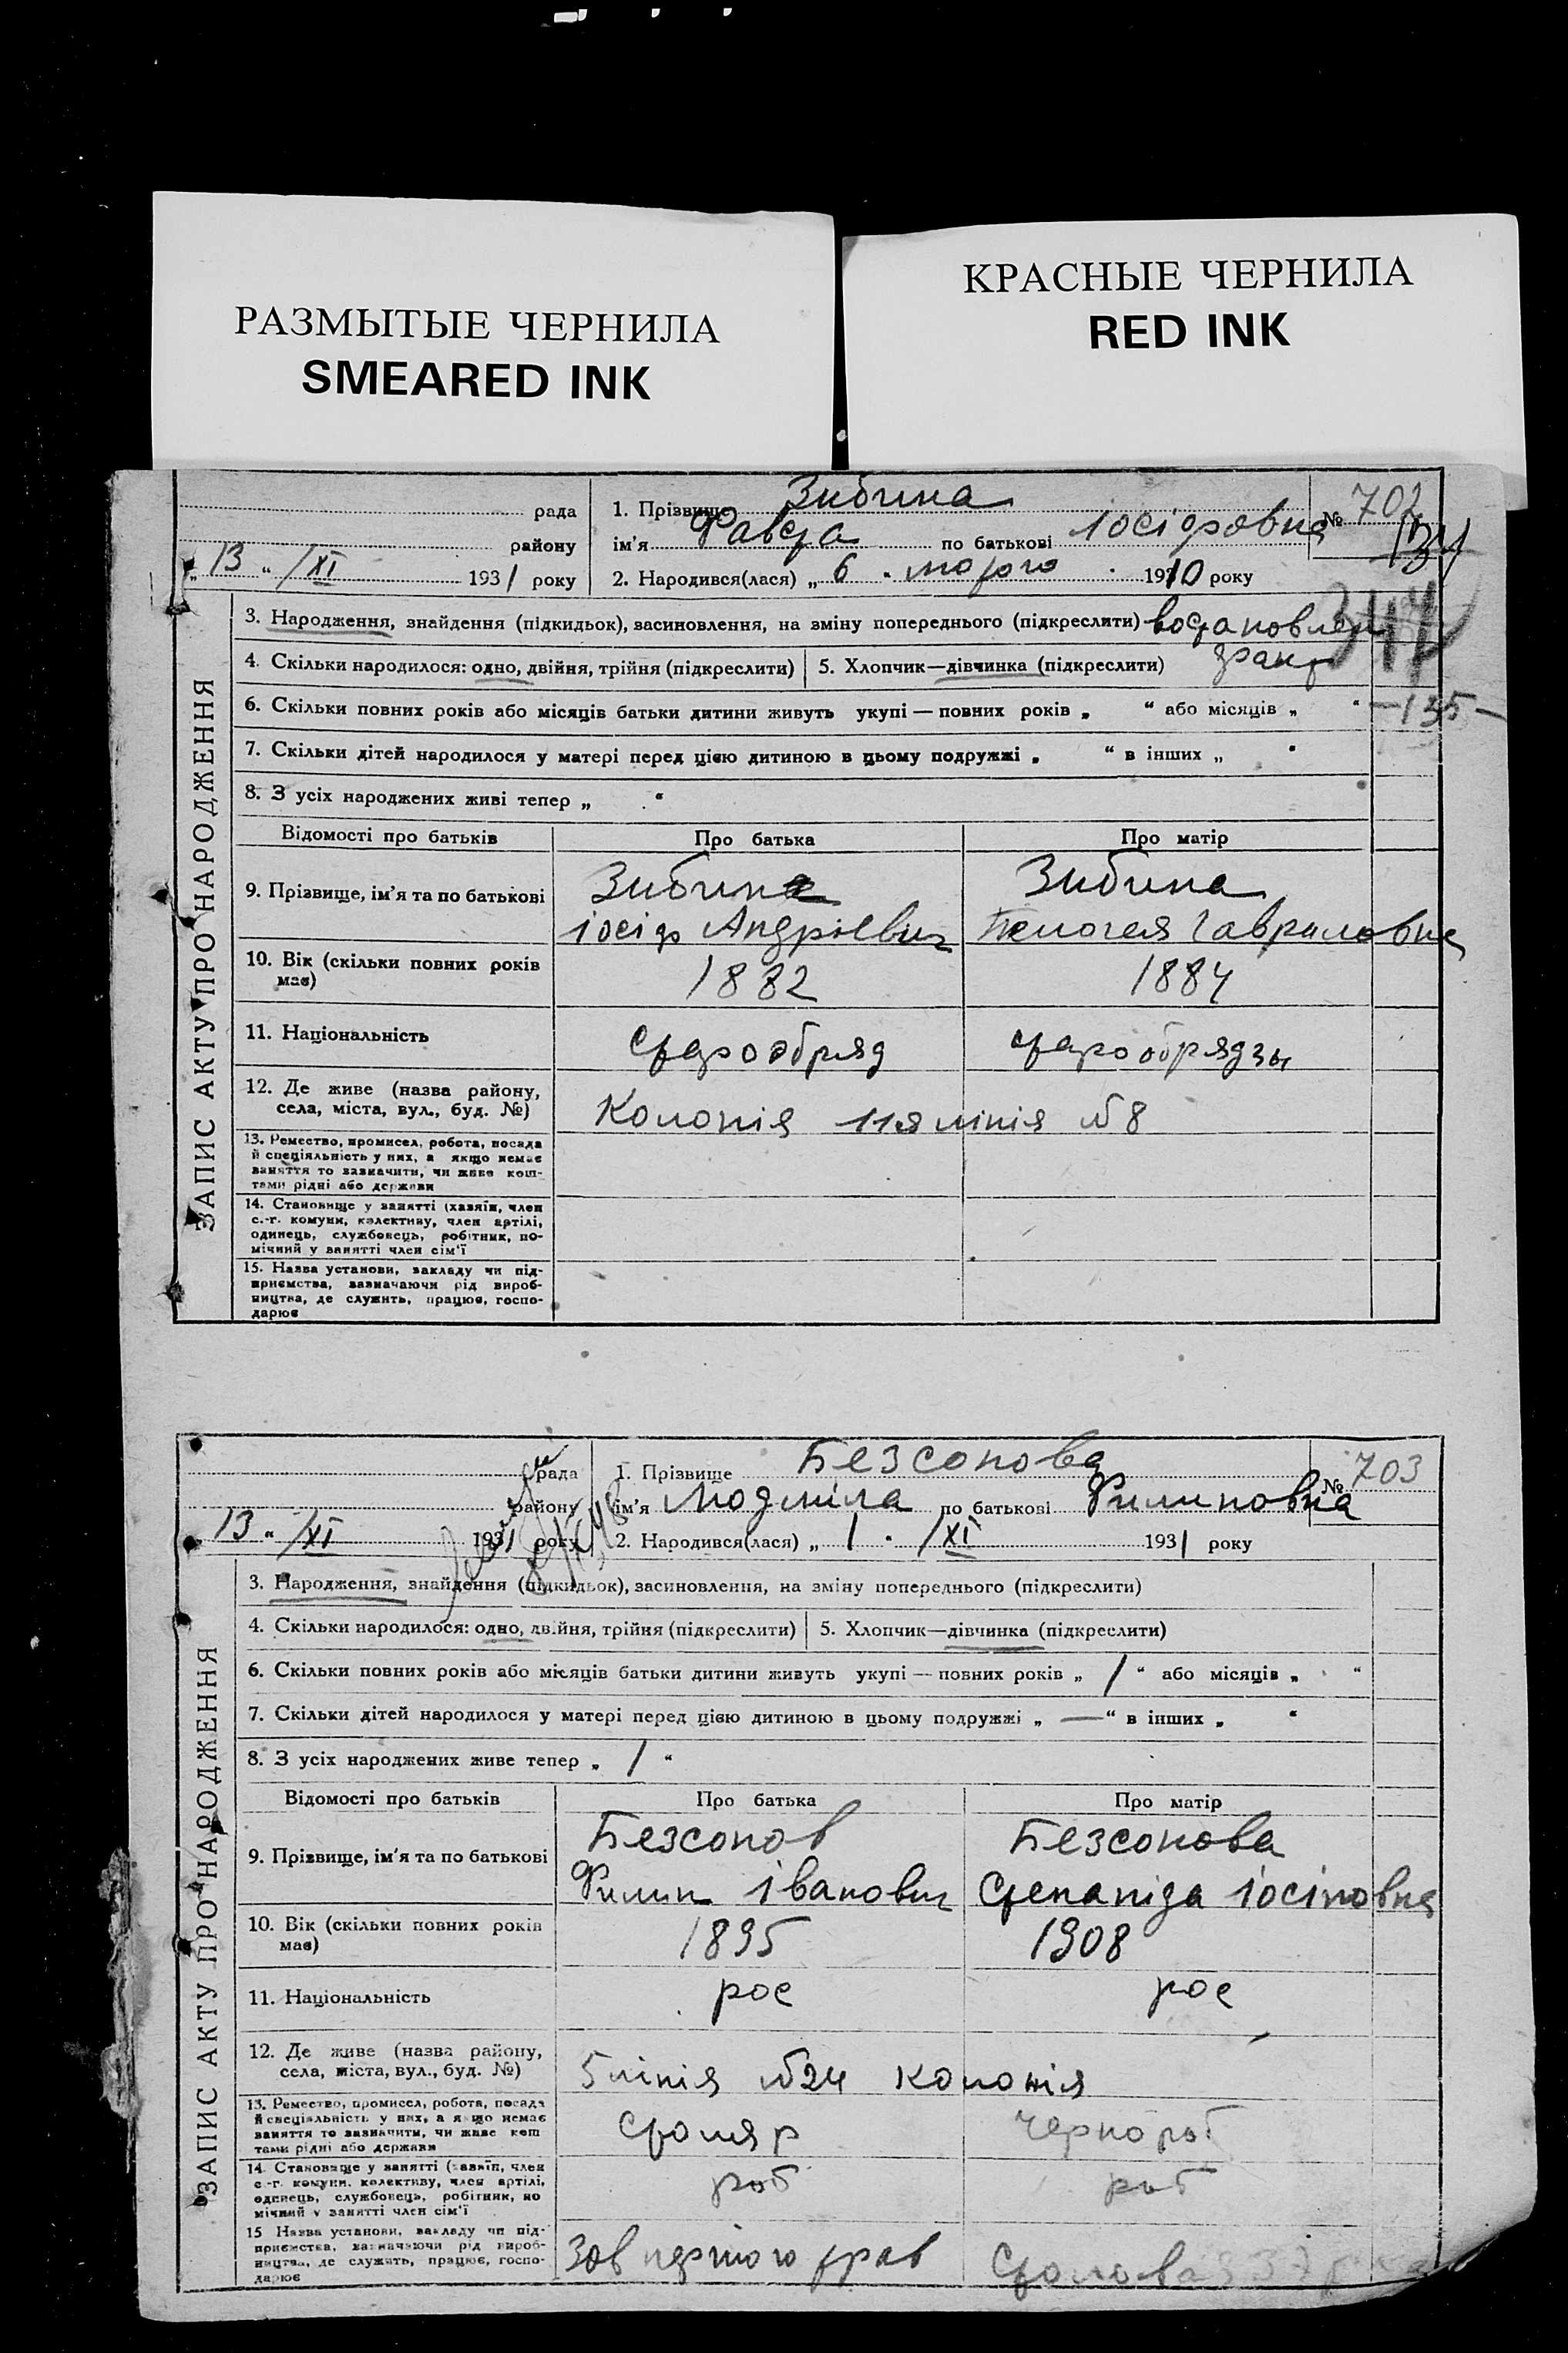 РАЗМЫТЫЕ ЧЕРНИЛА
SMEARED INK
КРАСНЫЕ ЧЕРНИЛА
RED INK
ЗАПИС АКТУ ПРО НАРОДЖЕННЯ
рада
району
„ 13 “ /XI 1931 року
1. Прізвище Зибина
№ 702
ім’я Фавста по батькові Іосіфовна
2. Народився(лася) „ 6 “ лютого 1910 року
3. Народження, знайдення (підкидьок), засиновлення, на зміну попереднього (підкреслити)
4. Скільки народилося: одно, двійня, трійня (підкреслити) 5. Хлопчик—дівчинка (підкреслити)
6. Скільки повних років або місяців батьки дитини живуть укупі — повних років „ “ або місяців „ “
—135—
7. Скільки дітей народилося у матері перед цією дитиною в цьому подружжі „ “ в інших „ “
8. З усіх народжених живі тепер „ “
Відомості про батьків Про батька Про матір
9. Прізвище, ім’я та по батькові
Зибина Зибина
іосіф Андріевич Пелогея Гавриловна
10. Вік (скільки повних років має)
1882 1884
11. Національність
старообряд старообрядзы
12. Де живе (назва району, села, міста, вул., буд. №)
Колонія 11я лінія №8
13. Ремество, промисел, робота, посада
й спеціяльність у них, а якщо немає
заняття то зазначити, чи живе кош-
тами рідні або держави
14. Становище у занятті (хазяїн, член
с.-г. комуни, колективу, член артілі,
одинець, службовець, робітник, по-
мічний у занятті член сім’ї
15. Назва установи, закладу чи під-
приємства, зазначаючи рід вироб-
ництва, де служить, працює, госпо-
дарює
ЗАПИС АКТУ ПРО НАРОДЖЕННЯ
рада
району
13 “ /XI 1931 року
1. Прізвище Безсонова
№ 703
ім’я Людміла по батькові Филиповна
2. Народився(лася) „ 1 “ /XI 1931 року
3. Народження, знайдення (підкидьок), засиновлення, на зміну попереднього (підкреслити)
4. Скільки народилося: одно, двійня, трійня (підкреслити) 5. Хлопчик—дівчинка (підкреслити)
6. Скільки повних років або місяців батьки дитини живуть укупі — повних років „ 1 “ або місяців „ “
7. Скільки дітей народилося у матері перед цією дитиною в цьому подружжі „ — “ в інших „ “
8. З усіх народжених живе тепер „ 1 “
Відомості про батьків Про батька Про матір
9. Прізвище, ім’я та по батькові
Безсонов Безсонова
Филип Іванович Степаніда Іосіповна
10. Вік (скільки повних років має)
1895 1908
11. Національність
рос рос
12. Де живе (назва району, села, міста, вул., буд. №)
5 лінія №24 колонія
13. Ремество, промисел, робота, посада
й спеціяльність у них, а якщо немає
заняття то зазначити, чи живе кош
тами рідні або держави
Столяр Чернороб
14. Становище у занятті (хазяїн, член
с.-г. комуни, колективу, член артілі,
одинець, службовець, робітник, по
мічний у занятті член сім’ї
роб роб
15 Назва установи, закладу чи під-
приємства, зазначаючи рід вироб-
ництва, де служить, працює, госпо-
дарює
Столовая